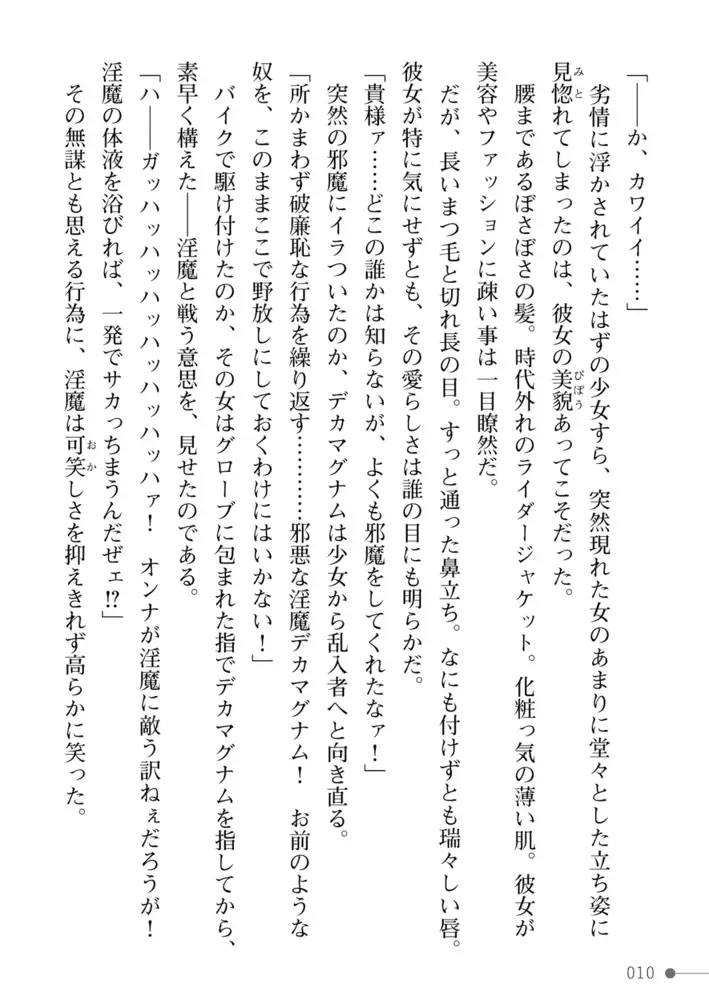 「――か、カワイイ……」
劣情に浮かされていたはずの少女すら、突然現れた女のあまりに堂々とした立ち姿に
見惚れてしまったのは、彼女の美貌あってこそだった。
腰まであるぼさぼさの髪。時代外れのライダージャケット。化粧っ気の薄い肌。彼女が
美容やファッションに疎い事は一目瞭然だ。
だが、長いまつ毛と切れ長の目。すっと通った鼻立ち。なにも付けずとも瑞々しい唇。
彼女が特に気にせずとも、その愛らしさは誰の目にも明らかだ。
「貴様ァ……どこの誰かは知らないが、よくも邪魔をしてくれたなァ！」
突然の邪魔にイラついたのか、デカマグナムは少女から乱入者へと向き直る。
「所かまわず破廉恥な行為を繰り返す…………邪悪な淫魔デカマグナム！　お前のような
奴を、このままここで野放しにしておくわけにはいかない！」
バイクで駆け付けたのか、その女はグローブに包まれた指でデカマグナムを指してから、
素早く構えた――淫魔と戦う意思を、見せたのである。
「ハ――ガッハッハッハッハッハッハッハァ！　オンナが淫魔に敵う訳ねぇだろうが！
淫魔の体液を浴びれば、一発でサカっちまうんだぜェ!?」
その無謀とも思える行為に、淫魔は可笑しさを抑えきれず高らかに笑った。
010